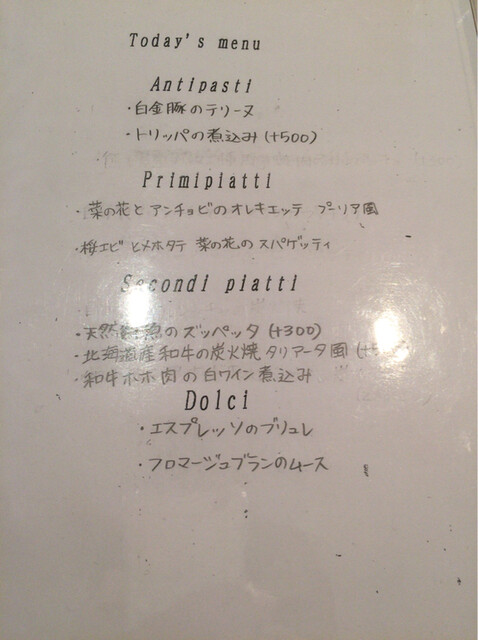 Today's menu
Antipasti
・白金豚のテリーヌ
・トリッパの煮込み (+500)
Primipiatti
・菜の花と アンチョビのオレキエッテ プーリア風
・桜エビ とメホタテ 菜の花の スパゲッティ
Secondi piatti
・天然 魚のズッペッタ (+300)
・北海道産和牛の炭火焼 タリアータ風
・和牛ホホ肉の白ワイン煮込み
Dolci
・エスプレッソのブリュレ
・フロマージュブランのムース